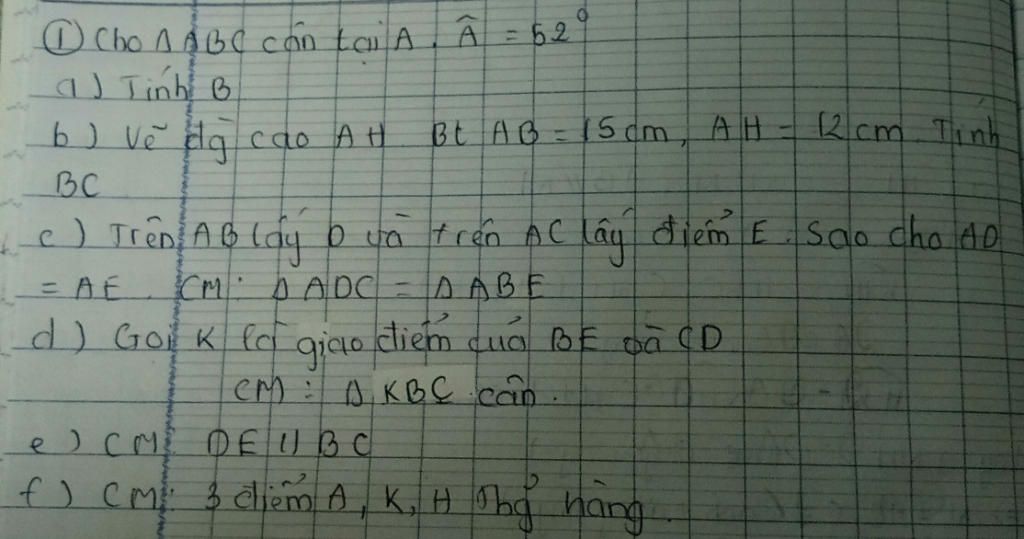 ① Cho Δ ABC cân tại A. Â = 52°
a) Tính B
b) Vẽ đg cao AH Bt AB = 15 cm, AH = 12 cm Tính
BC
c) Trên AB lấy D và trên AC lấy điểm E. Sao cho AD
= AE. CM: Δ ADC = Δ ABE
d) Gọi K là giao điểm của BE và CD
CM: Δ KBC cân.
e) CM: DE // BC
f) CM: 3 điểm A, K, H thg hàng.